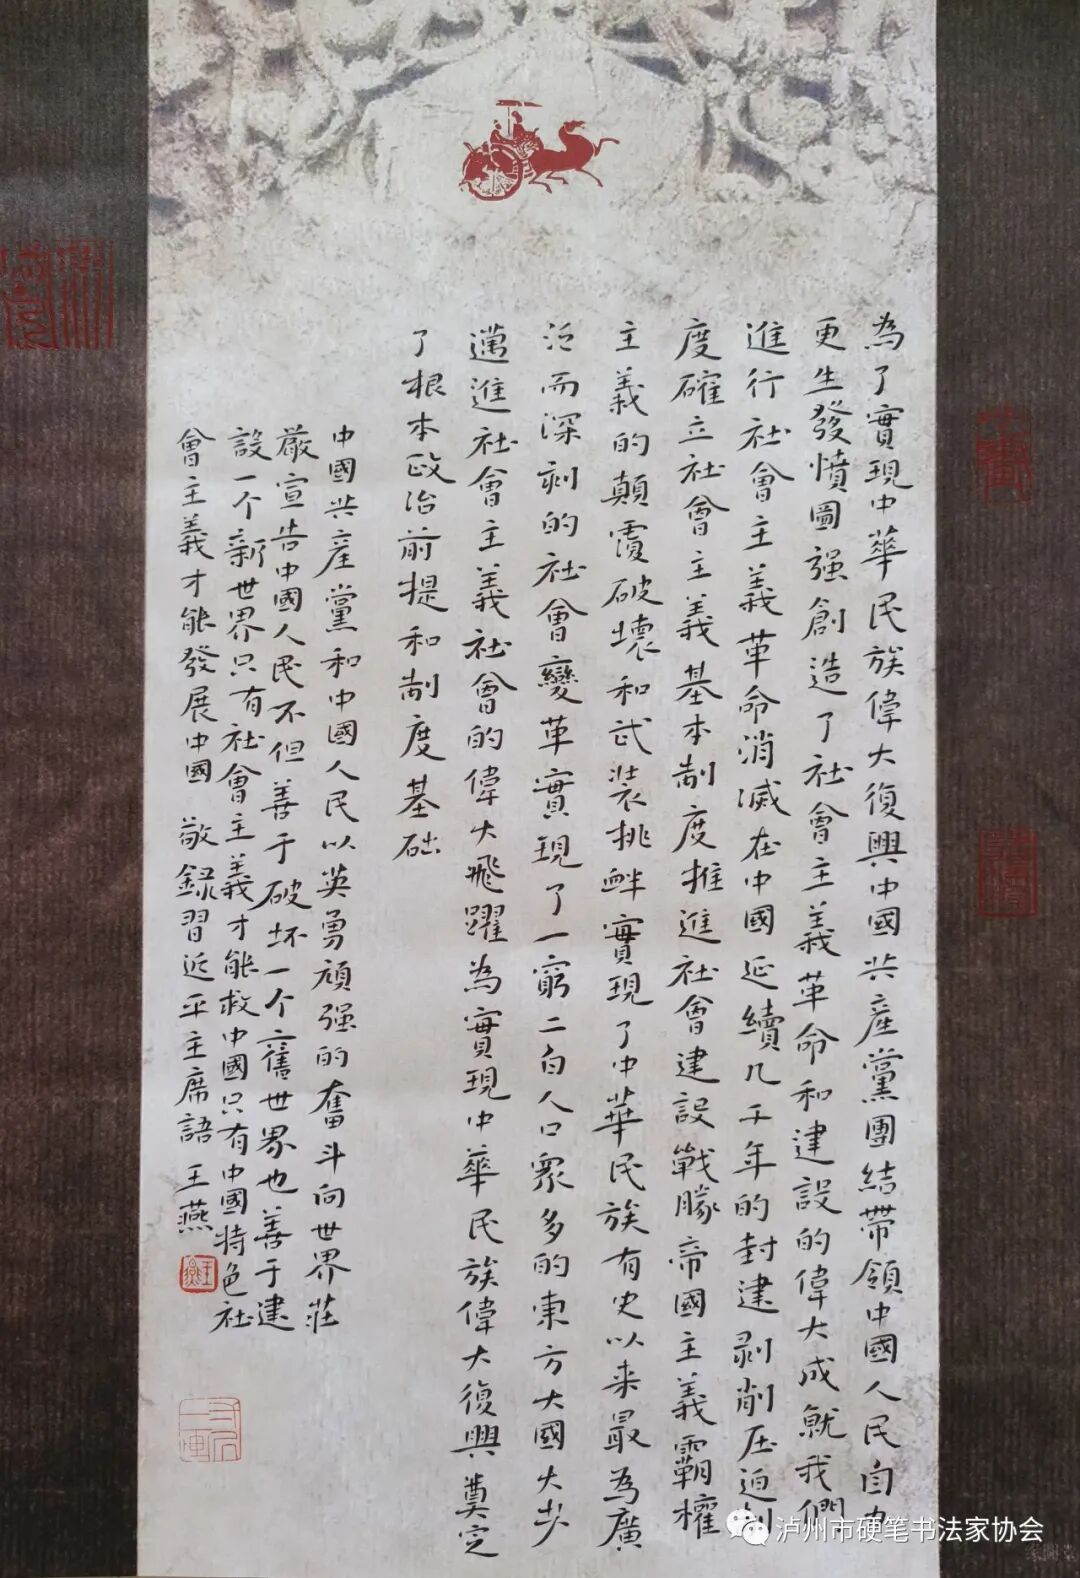 为了實現中華民族偉大復興中國共產黨團結帶領中國人民自力
更生發憤圖强創造了社會主義革命和建設的偉大成就我們
進行社會主義革命消滅在中國延續几千年的封建剥削压迫制
度確立社會主義基本制度推進社會建設戰勝帝國主義霸權
主義的顛覆破壞和武装挑衅實現了中華民族有史以来最為廣
泛而深刻的社會變革實現了一窮二白人口衆多的東方大國大步
邁進社會主義社會的偉大飛躍為實現中華民族偉大復興奠定
了根本政治前提和制度基础
中國共產黨和中國人民以英勇頑强的奮斗向世界莊
嚴宣告中國人民不但善于破坏一个舊世界也善于建
設一个新世界只有社會主義才能救中國只有中國特色社
會主義才能發展中國 敬録習近平主席語 王燕
王燕
泸州市硬笔书法家协会